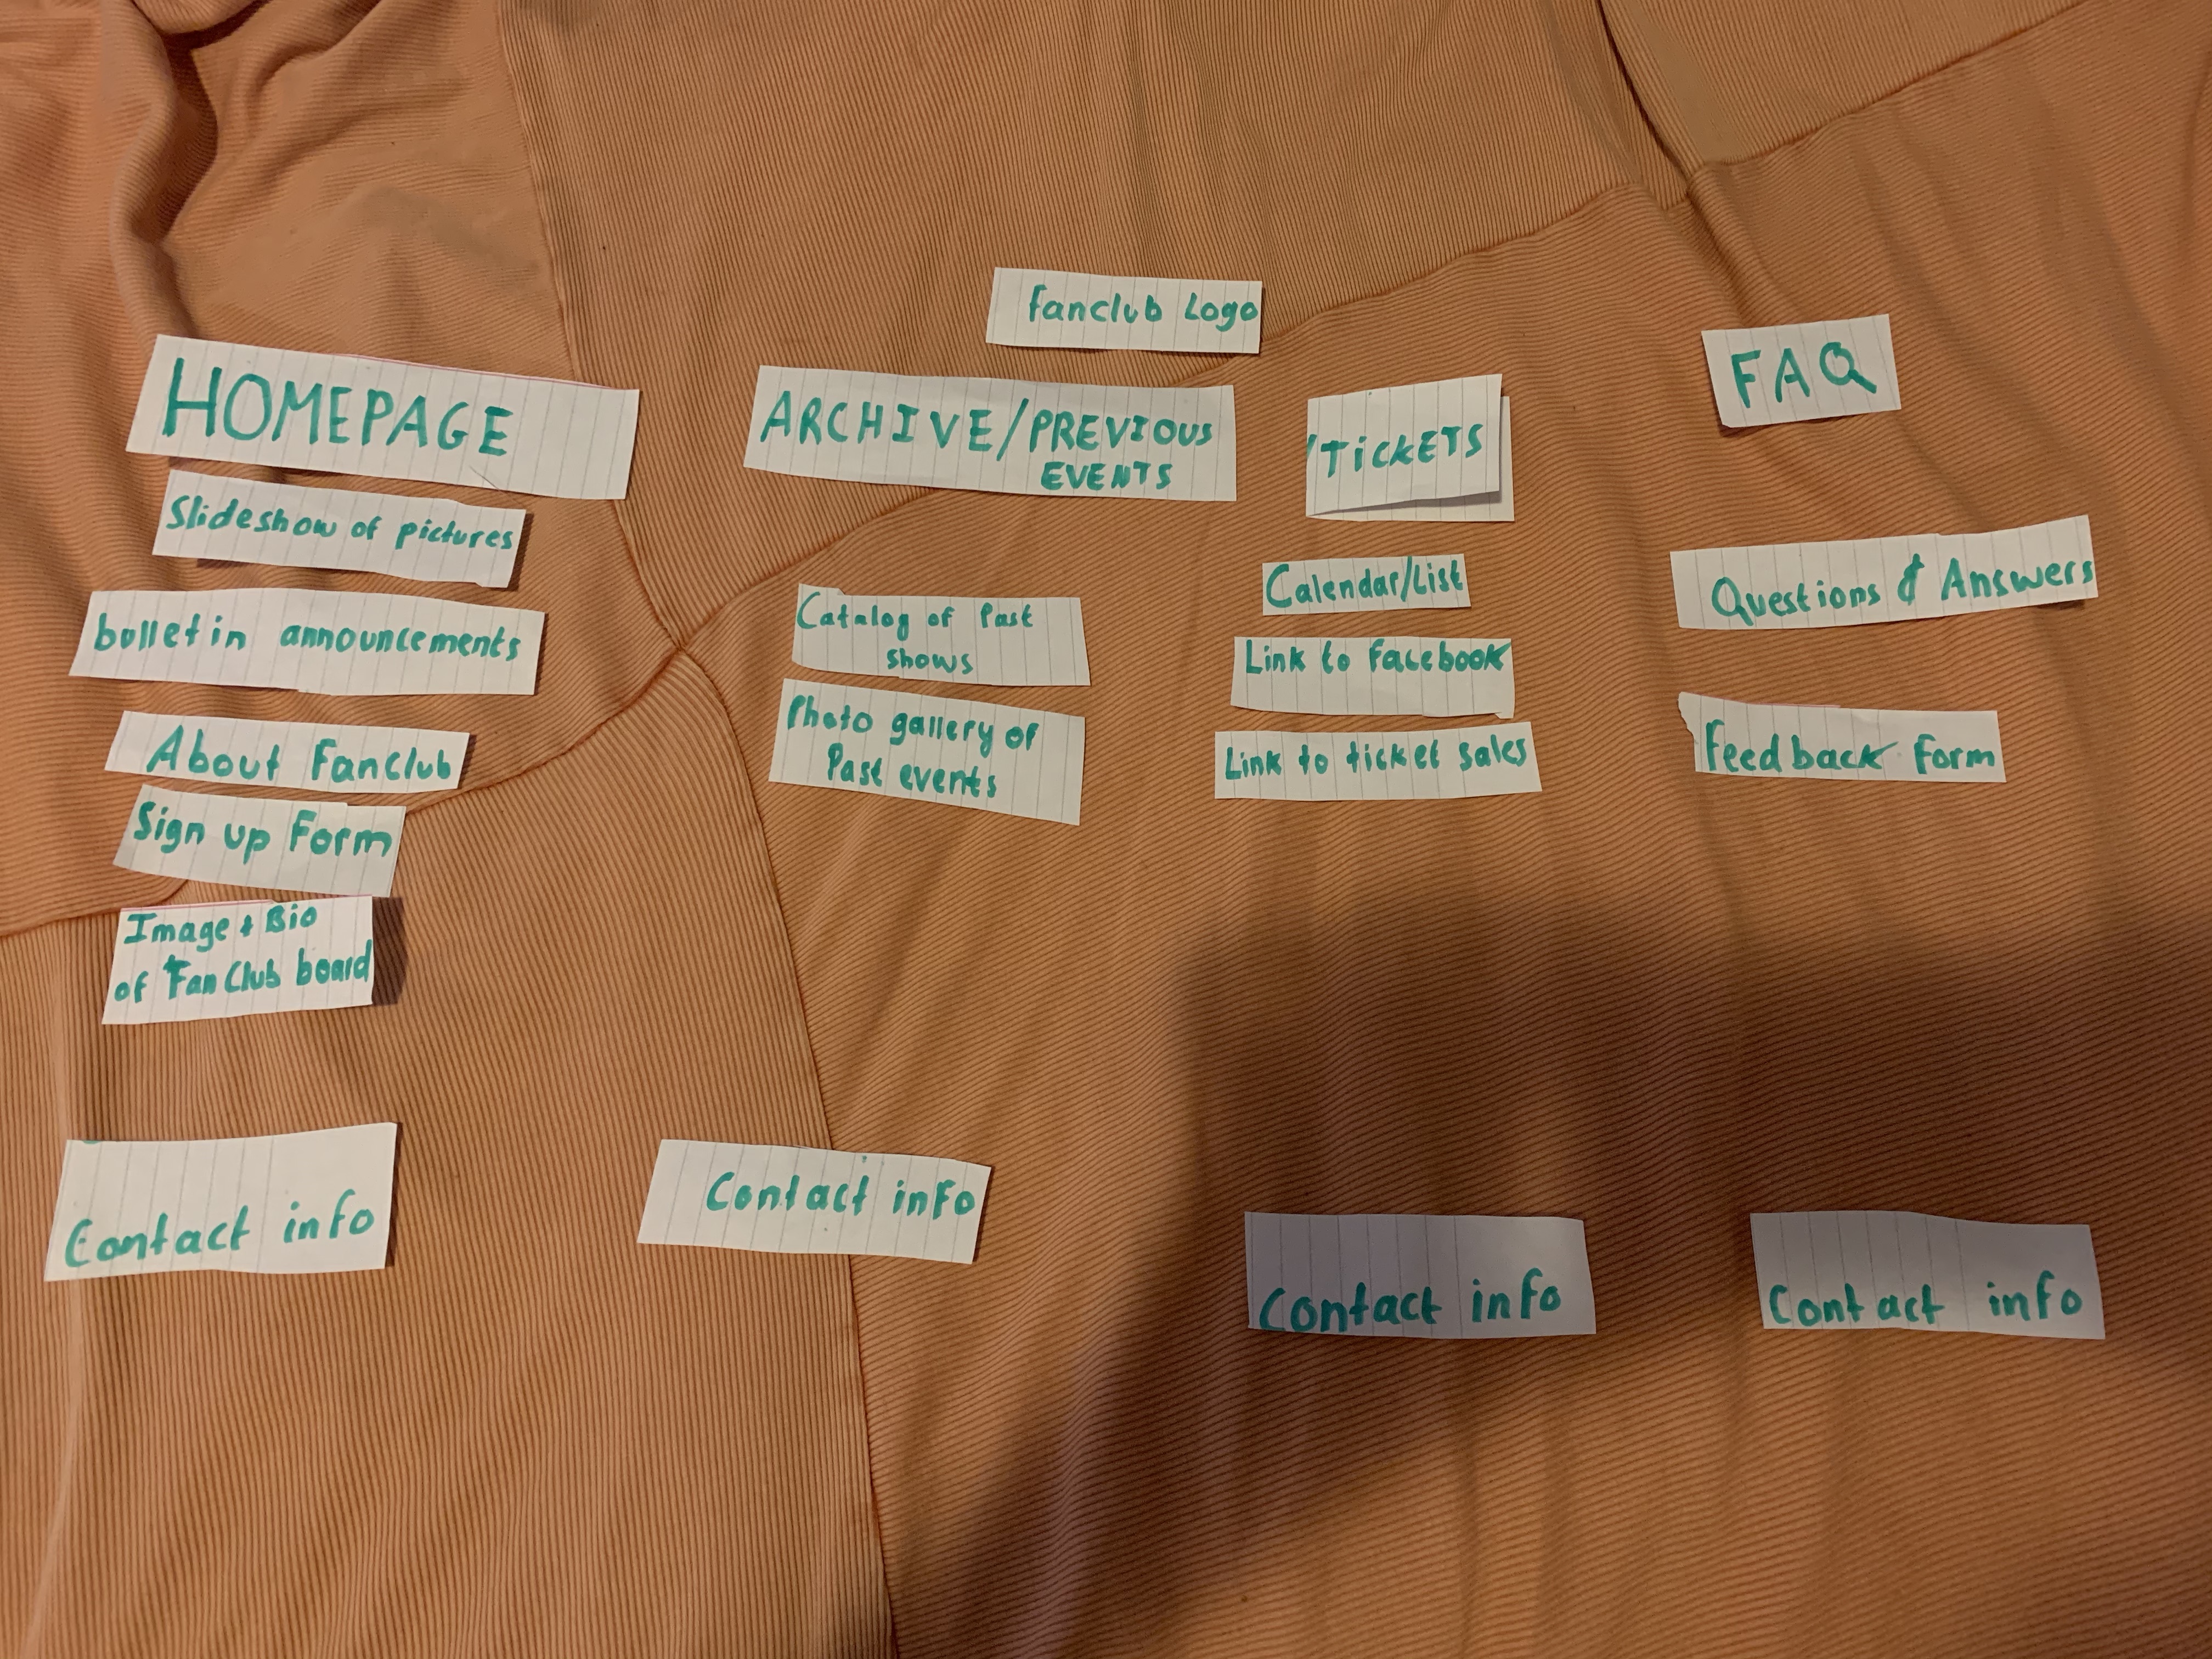 Fanclub Logo
HOMEPAGE
Slideshow of pictures
bulletin announcements
About Fanclub
Sign up Form
Image & Bio
of Fan Club board
Contact info
ARCHIVE/PREVIOUS
EVENTS
Catalog of Past
shows
Photo gallery of
Past events
Contact info
/TICKETS
Calendar/List
Link to facebook
Link to ticket sales
Contact info
FAQ
Questions & Answers
Feedback form
Contact info